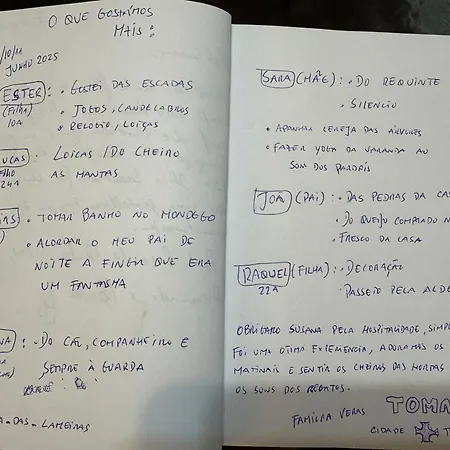 O QUE GOSTÁMOS
MAIS:
/10/11
JUNHO 2025
ESTER: • GOSTEI DAS ESCADAS
(FILHA) • JOGOS, CANDELABROS
10A • RELOGIO, LOIÇAS
UCAS: LOICAS / DO CHEIRO
ILHO AS MANTAS
24A
• TOMAR BANHO NO MONDEGO
• ALORDAR O MEU PAI DE
NOITE A FINGIR QUE ERA
UM FANTASMA
NA: • DO CÃO, COMPANHEIRO E
SEMPRE À GUARDA
A-DAS-LAMEIRAS
SARA (MÃE): • DO REQUINTE
• SILENCIO
• APANHAR CEREJA DAS ÁRVORES
• FAZER YOGA DA VARANDA AO
SOM DOS PARDAIS
JOA (PAI): • DAS PEDRAS DA CAS
• DO QUEIJO COMPRADO N
• FRESCO DA CASA
RAQUEL (FILHA): • DECORAÇÃO
22A PASSEIO PELA ALDE
OBRIGADO SUSANA PELA HOSPITALIDADE, SIMP
FOI UMA OTIMA EXPERIENCIA, ADORAMOS OS
MATINAIS E SENTIR OS CHEIROS DAS
OS SONS DOS
FAMILIA VERAS TOMA
CIDADE T